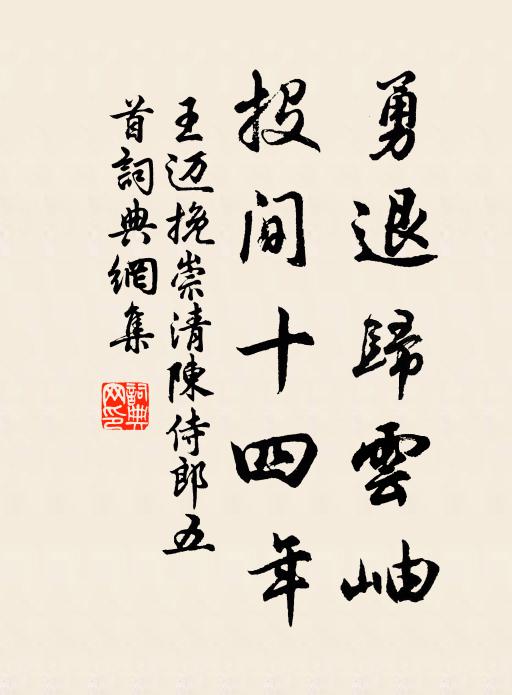 勇退歸雲岫
投閒十四年
王迈挽崇清陳侍郎五
首詞典網集
詞典網印